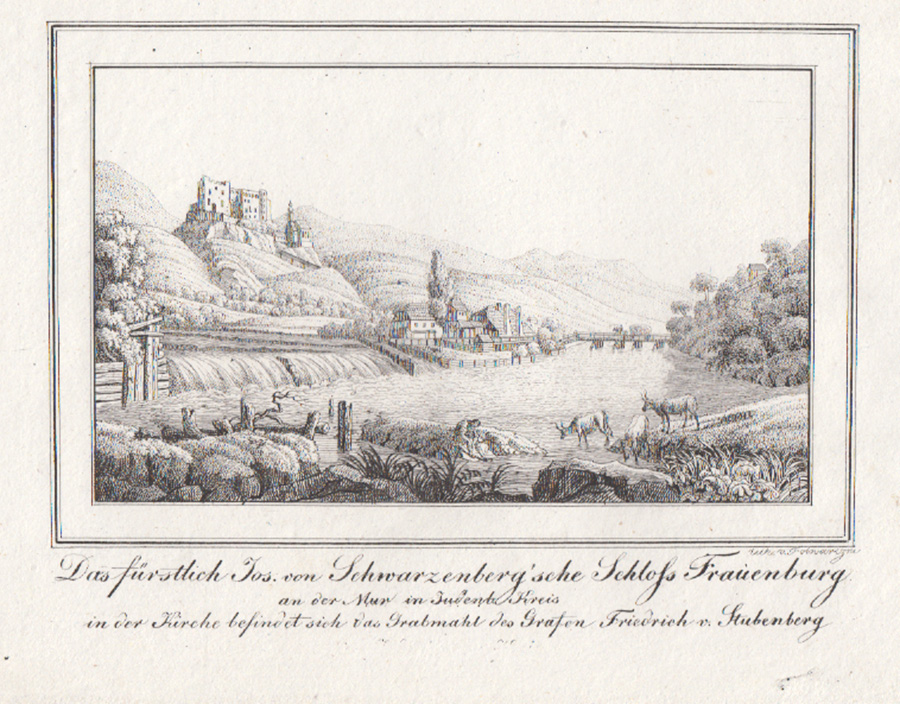 Das fürstlich Jos. von Schwarzenberg'sche Schloſs Fraŭenburg
an der Mur in Judenb. Kreis
in der Kirche befindet sich das Grabmahl des Grafen Friedrich v. Stubenberg